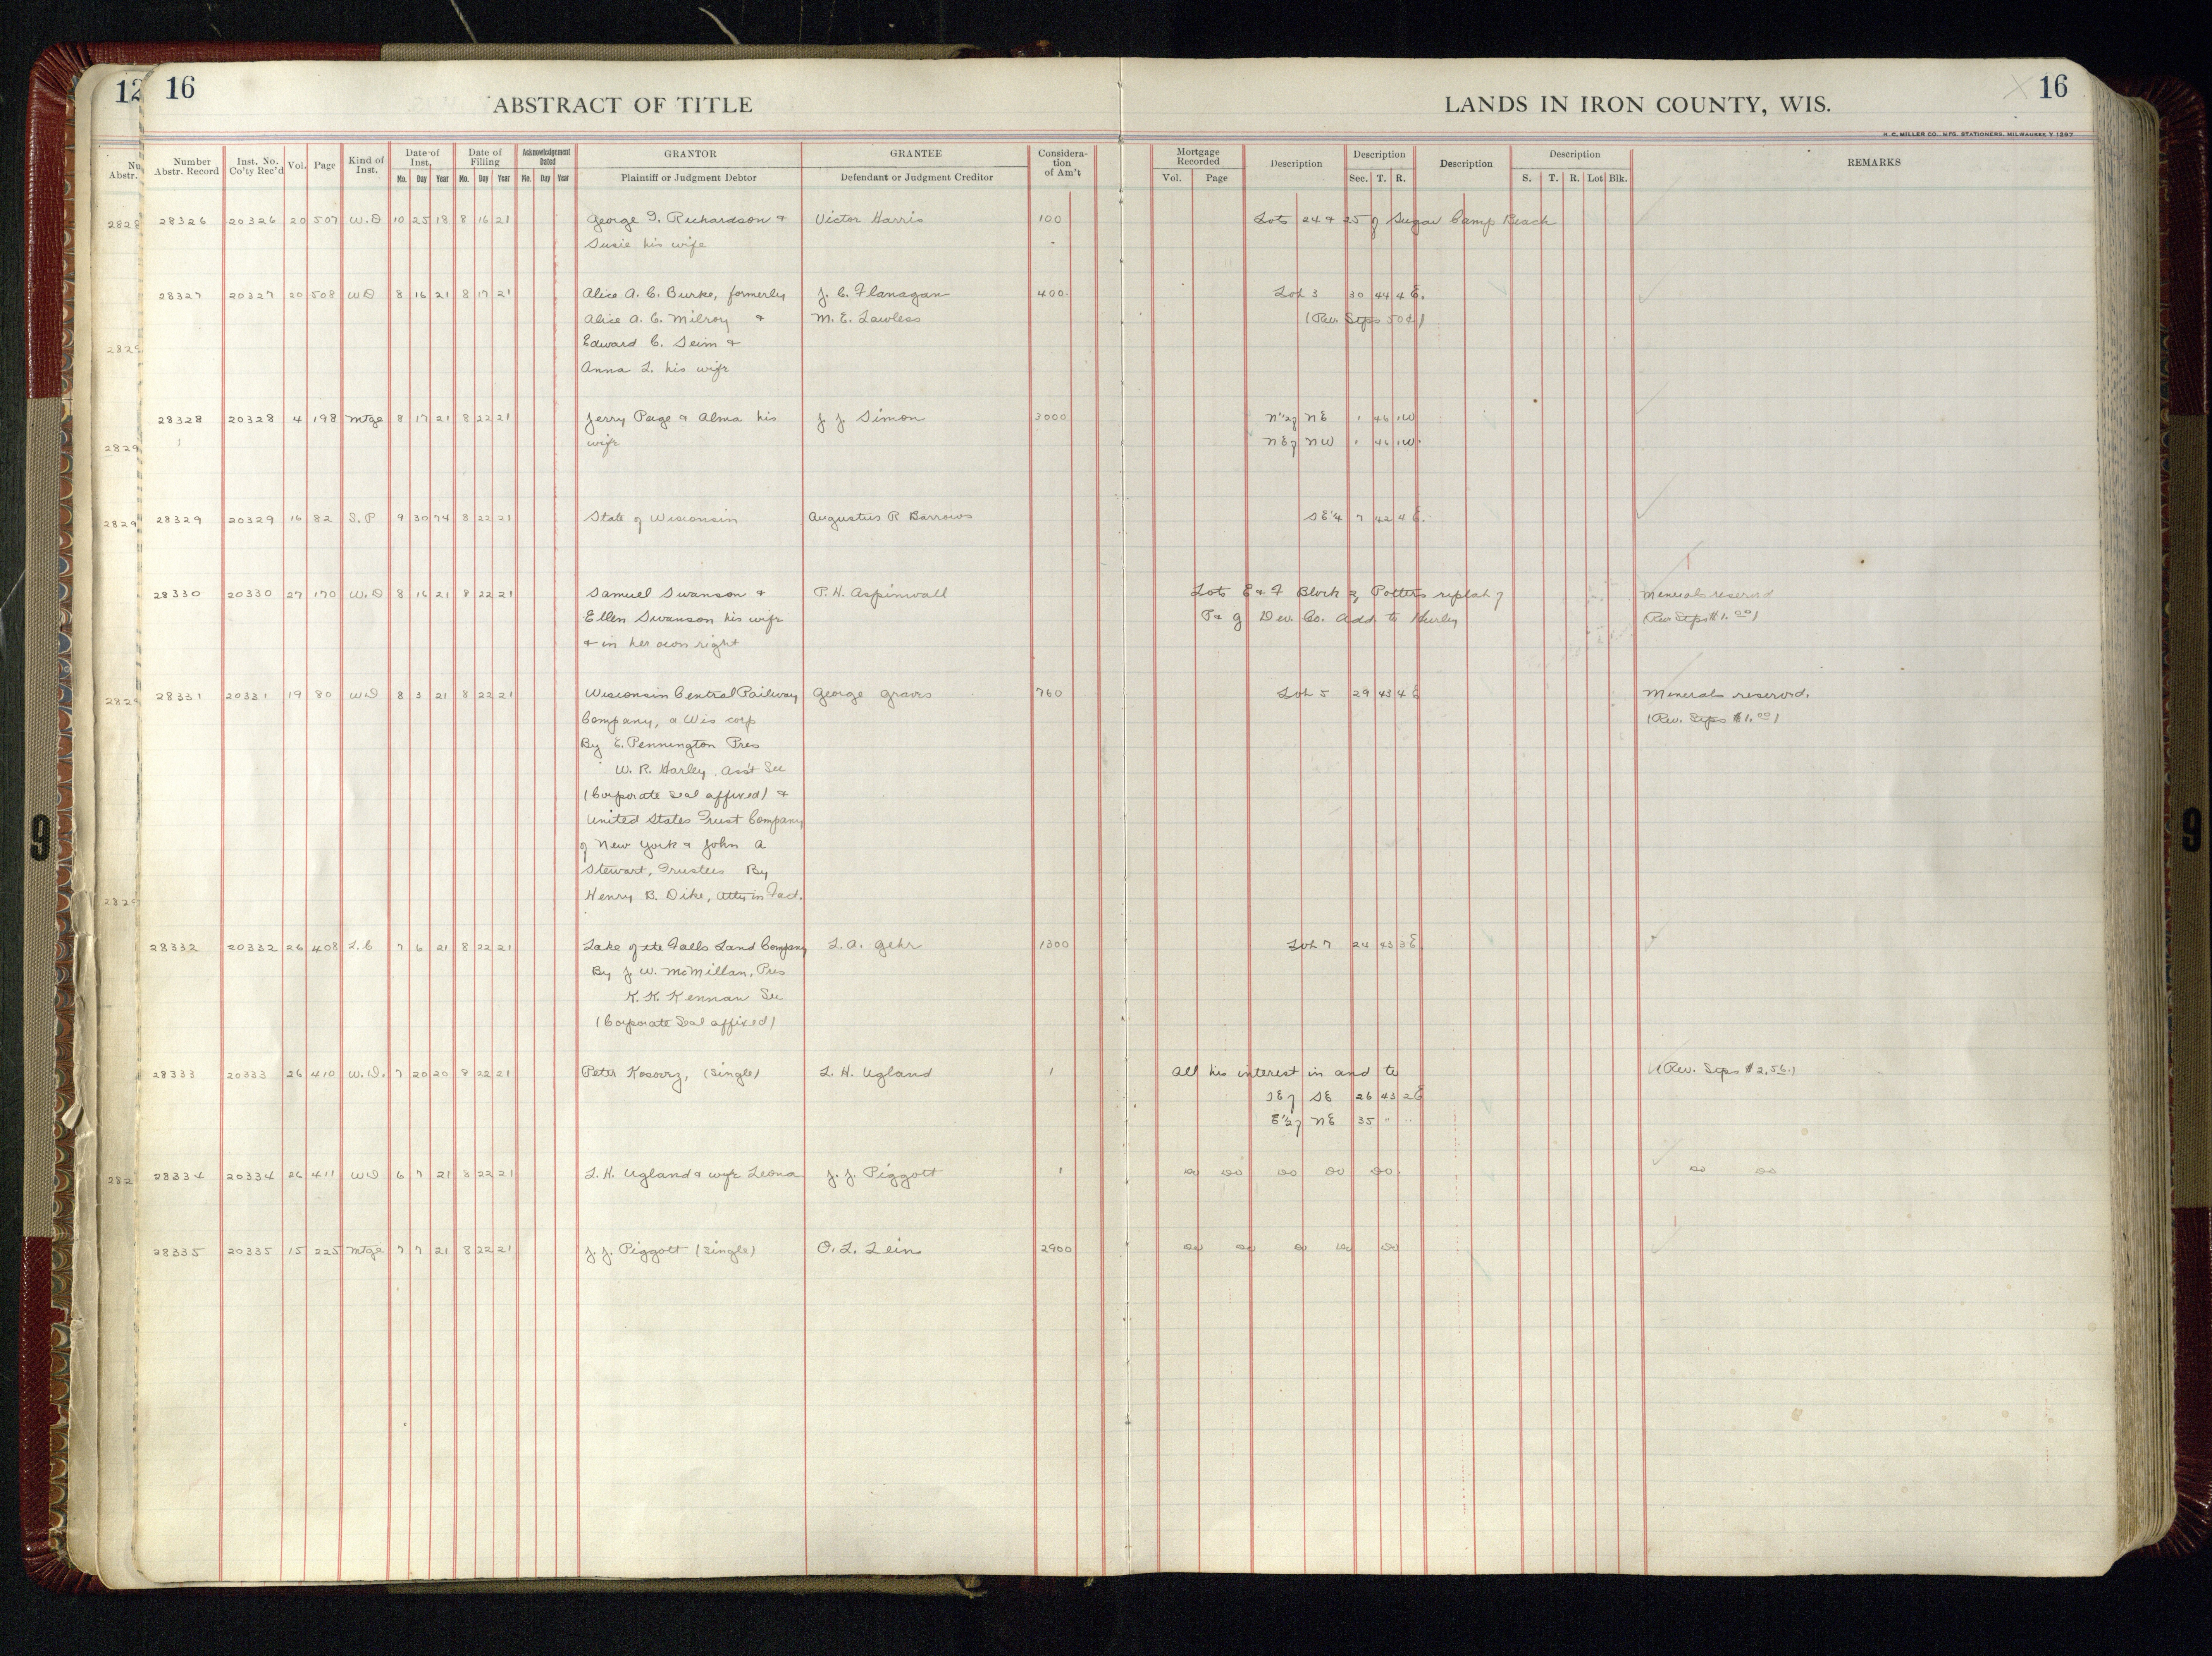 12 16
ABSTRACT OF TITLE
LANDS IN IRON COUNTY, WIS.
16
H. C. MILLER CO., MFG. STATIONERS, MILWAUKEE
Number Abstr. Record Inst. No. Co'ty Rec'd Vol. Page Kind of Inst. Date of Inst. Date of Filling Acknowledgement Dated GRANTOR GRANTEE Considera- tion of Am't Mortgage Recorded Description Description Description Description REMARKS
Mo. Day Year Mo. Day Year Mo. Day Year Plaintiff or Judgment Debtor Defendant or Judgment Creditor Vol. Page Sec. T. R. S. T. R. Lot Blk.
28326 20326 20 507 W.D 10 25 18 8 16 21 George Richardson & Victor Harris 100 Lots 24 & 25 of Sugar Camp Beach
Susie his wife
28327 20327 20 508 WD 8 16 21 8 17 21 Alice A. C. Burke, formerly J. C. Flanagan 400 Lot 3 30 44 4 E.
Alice A. C. Milroy & M. E. Lawless (Rev Stps 50¢)
Edward C. Seim &
Anna L. his wife
28328 20328 4 198 Mtge 8 17 21 8 22 21 Jerry Page & Alma his J J Simon 3000 N½ of NE 1 46 1W
wife NE of NW 1 46 1W.
28329 20329 16 82 S.P 9 30 74 8 22 21 State of Wisconsin Augustus R Barrows SE¼ 7 42 4 E.
28330 20330 27 170 W.D 8 16 21 8 22 21 Samuel Swanson & P. H. Aspinwall Lots E & F Block 2 Potters replat of Minerals reserved
Ellen Swanson his wife P & G Dev. Co. Add. to Hurley (Rev Stps $1.00)
& in her own right
28331 20331 19 80 WD 8 3 21 8 22 21 Wisconsin Central Railway George Graves 760 Lot 5 29 43 4 E Minerals reserved.
Company, a Wis corp (Rev. Stps $1.00)
By E. Pennington Pres
W. R. Harley, Ass't Sec
(Corporate seal affixed) &
United States Trust Company
of New York & John A
Stewart, Trustees By
Henry B. Dike, Atty in Fact.
28332 20332 26 408 L.C 7 6 21 8 22 21 Lake of the Falls Land Company L. A. Gehr 1300 Lot 7 24 43 3E
By J W. McMillan, Pres
K. K. Kennan Sec
(Corporate Seal affixed)
28333 20333 26 410 W.D. 7 20 20 8 22 21 Peter (single) L. H. Ugland 1 All his interest in and to (Rev. Stps $2.50.)
SE of SE 26 43 2E
E½ of NE 35 " "
28334 20334 26 411 WD 6 7 21 8 22 21 L. H. Ugland & wife Leona J. J. Piggott 1 do do do do do do do
28335 20335 15 225 Mtge 7 7 21 8 22 21 J. J. Piggott (single) O. L. Lein 2900 do do do do do
9
9